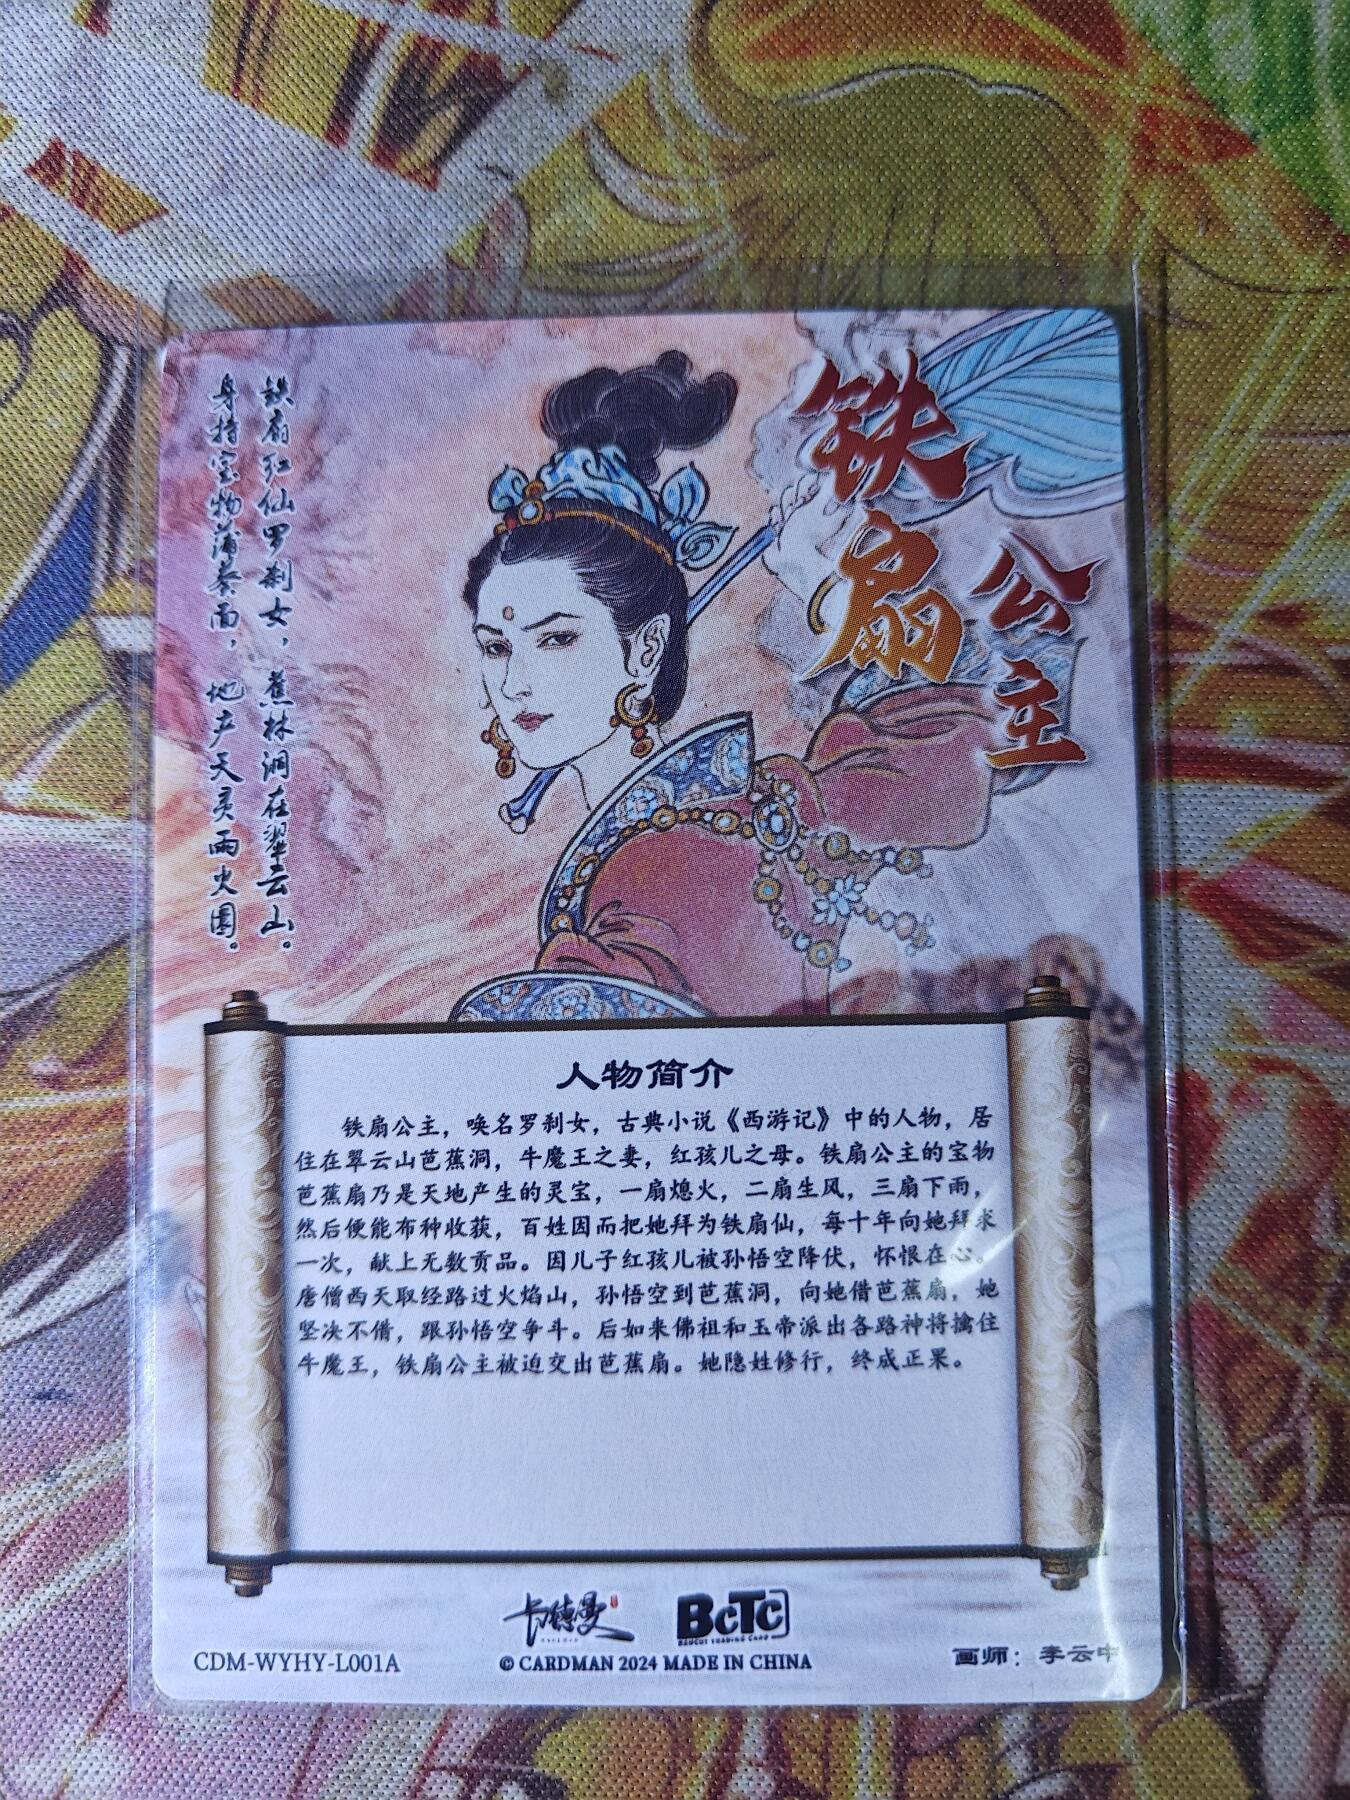 铁扇公主
铁扇红仙罗刹女，蕉林洞在翠云山。
身持宝物蒲葵雨，地产天灵雨火园。
人物简介
铁扇公主，唤名罗刹女，古典小说《西游记》中的人物，居
住在翠云山芭蕉洞，牛魔王之妻，红孩儿之母。铁扇公主的宝物
芭蕉扇乃是天地产生的灵宝，一扇熄火，二扇生风，三扇下雨，
然后便能布种收获，百姓因而把她拜为铁扇仙，每十年向她拜求
一次，献上无数贡品。因儿子红孩儿被孙悟空降伏，怀恨在心。
唐僧西天取经路过火焰山，孙悟空到芭蕉洞，向她借芭蕉扇，她
坚决不借，跟孙悟空争斗。后如来佛祖和玉帝派出各路神将擒住
牛魔王，铁扇公主被迫交出芭蕉扇。她隐姓修行，终成正果。
卡德曼
BCTC
CDM-WYHY-L001A
© CARDMAN 2024 MADE IN CHINA
画师：李云中